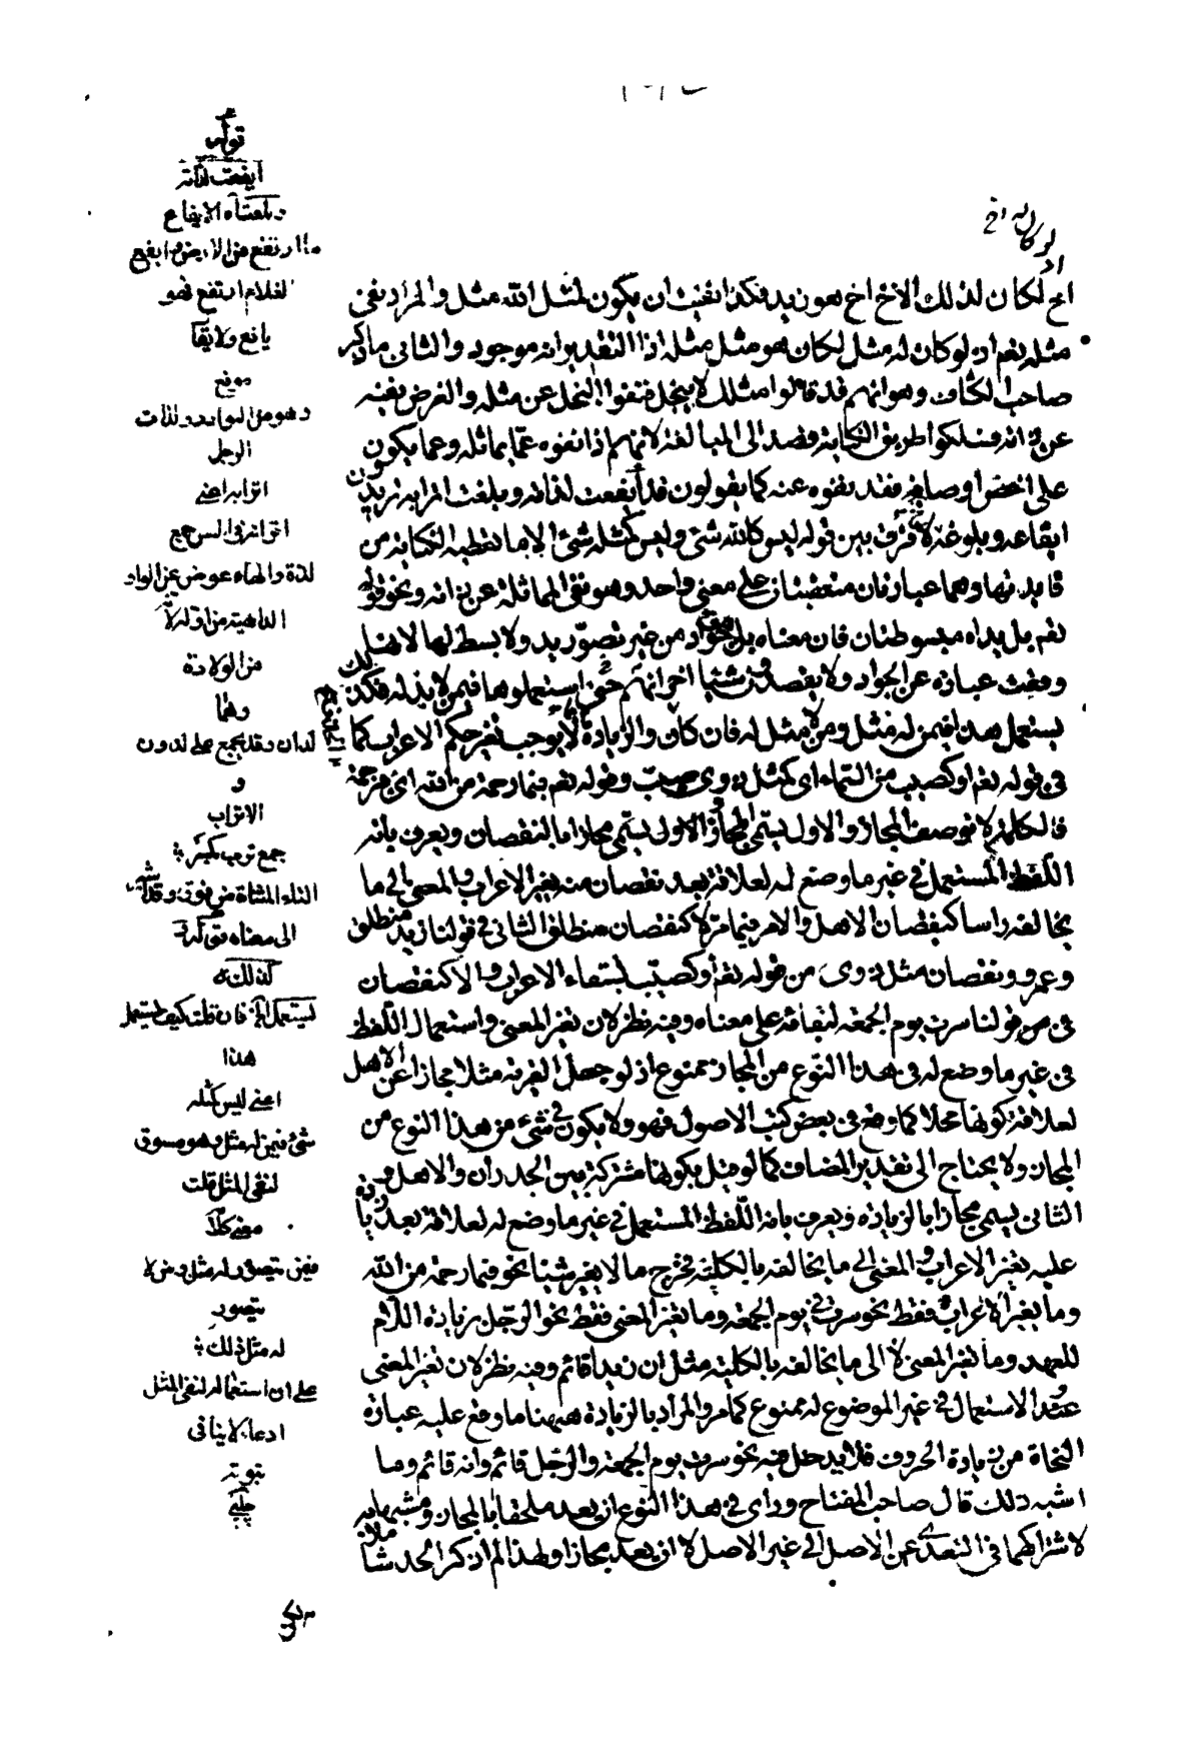 اذ لو كان له اخ
اخ لكان لذلك الاخ اخ هو زيد فكذا نفيت ان يكون لمثل الله مثل والمراد نفى
مثله تعم اذ لو كان له مثل لكان هو مثل مثله اذ التقدير انه موجود والثانى ما ذكر
صاحب الكشاف وهو انهم قد قالوا مثلك لا يبخل فنفوا البخل عن مثله والغرض نفيه
عن ذاته فسلكوا طريق الكناية قصدا الى المبالغة لانهم اذا نفوه عمّا يماثله وعما يكون
على اخص اوصافه فقد نفوه عنه كما يقولون قد ايفعت لذاته وبلغت اترابه تريدون
ايفاعه وبلوغه لا فرق بين قوله ليس كالله شئ وليس كمثله شئ الا ما تعطيه الكناية من
فايدتها وهما عبارتان متعقبتان على معنى واحد وهو نفى المماثلة عن ذاته ونحو قوله
تعم بل يداه مبسوطتان فان معناه بل هو جواد من غير تصوّر يد ولا بسط لها لانها
وقعت عبارة عن الجواد ولا يقصدون شيئا اخر انهم حتى استعملوها فيمن لا يد له فكذلك
يستعمل هذا فيمن له مثل ومن لا مثل له فان كان والزيادة لا يوجب تغير حكم الاعراب كما
فى قوله تعم او كصيب من السماء اى كمثل ذوى صيب وقوله تعم فبما رحمة من الله اى فبرحمة
فالكلمة لا توصف بالمجاز والاول يسمى مجازا بالنقصان ويعرف بانه
اللّفظ المستعمل فى غير ما وضع له لعلاقة بعد نقصان منه يغير الاعراب والمعنى الى ما
يخالفه راسا كنقصان الاهل والامر فيما مرّ لا كنقصان منطلق الثانى فى قولنا زيد منطلق
وعمرو ونقصان مثل ذوى من قوله تعم او كصيّب لبقاء الاعراب والا كنقصان
فى من قولنا سرت يوم الجمعة لبقائه على معناه وفيه نظر لان تغير المعنى واستعمال اللّفظ
فى غير ما وضع له فى هذا النوع من المجاز ممنوع اذ لو جعل القرية مثلا مجازا عن الاهل
لعلاقة كونها محلا كما وقع فى بعض كتب الاصول فهو ولا يكون فى شئ من هذا النوع من
المجاز ولا يحتاج الى تقدير المضاف كما لو قيل بكونها مشتركة بين الجدران والاهل
الثانى يسمى مجازا بالزيادة ويعرف بانه اللّفظ المستعمل فى غير ما وضع له لعلاقة بعد زيادة
عليه تغير الاعراب والمعنى الى ما يخالفه بالكلية فخرج ما لا يغير شيئا نحو فبما رحمة من الله
وما يغير الاعراب فقط نحو سرت فى يوم الجمعة وما يغير المعنى فقط نحو الرّجل بزيادة اللام
للعهد وما تغير المعنى لا الى ما يخالفه بالكلية مثل ان زيدا قائم وفيه نظر لان تغير المعنى
عند الاستعمال فى غير الموضوع له ممنوع كما مر والمراد بالزيادة ههنا ما وقع عليه عبارة
النحاة من زيادة الحروف فلا يدخل فيه نحو سرت يوم الجمعة والرّجل قائم وانه قائم وما
اشبه ذلك قال صاحب المفتاح ورأى فى هذا النوع ان يعد ملحقا بالمجاز ومشبها به
لاشتراكهما فى التعدى عن الاصل الى غير الاصل لا ان يعد مجازا ولهذا لم اذكر الحد شاملا
قوله
ايفعت لذاته
الايفاع
ما ارتفع من الارض وايفع
الغلام ارتفع فهو
يافع ولا يقال
موفع
وهو من النوادر ولذات
الرجل
اترابه اعنى
اقرانه فى السن جمع
لدة والهاء عوض عن الواو
الذاهبة من اوله لانه
من الولادة
وهما
لدان وقد يجمع على لدون
و
الاتراب
جمع ترب بكسر
التاء المثناة من فوق
الى معناه قوله
كذلك
يستعمل الخ فان قلت كيف يستعمل
هذا
اعنى ليس كمثله
شئ فيمن له مثل وهو مسوق
لنفى المثل قلت
معنى كلامه
فيمن يتصور له مثل ومن لا
يتصور
له مثل ذلك
على ان استعماله لنفى المثل
ادعاء لا ينافى
ثبوته
چلبى